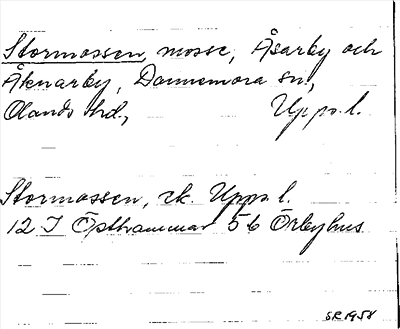 Stormossen, mosse, Åsarby och
Åknarby, Dannemora sn.,
Olands hd., Upps. l.
Stormossen, rk. Upps. l.
12 I Östhammar 5b Örbyhus
SR 1958